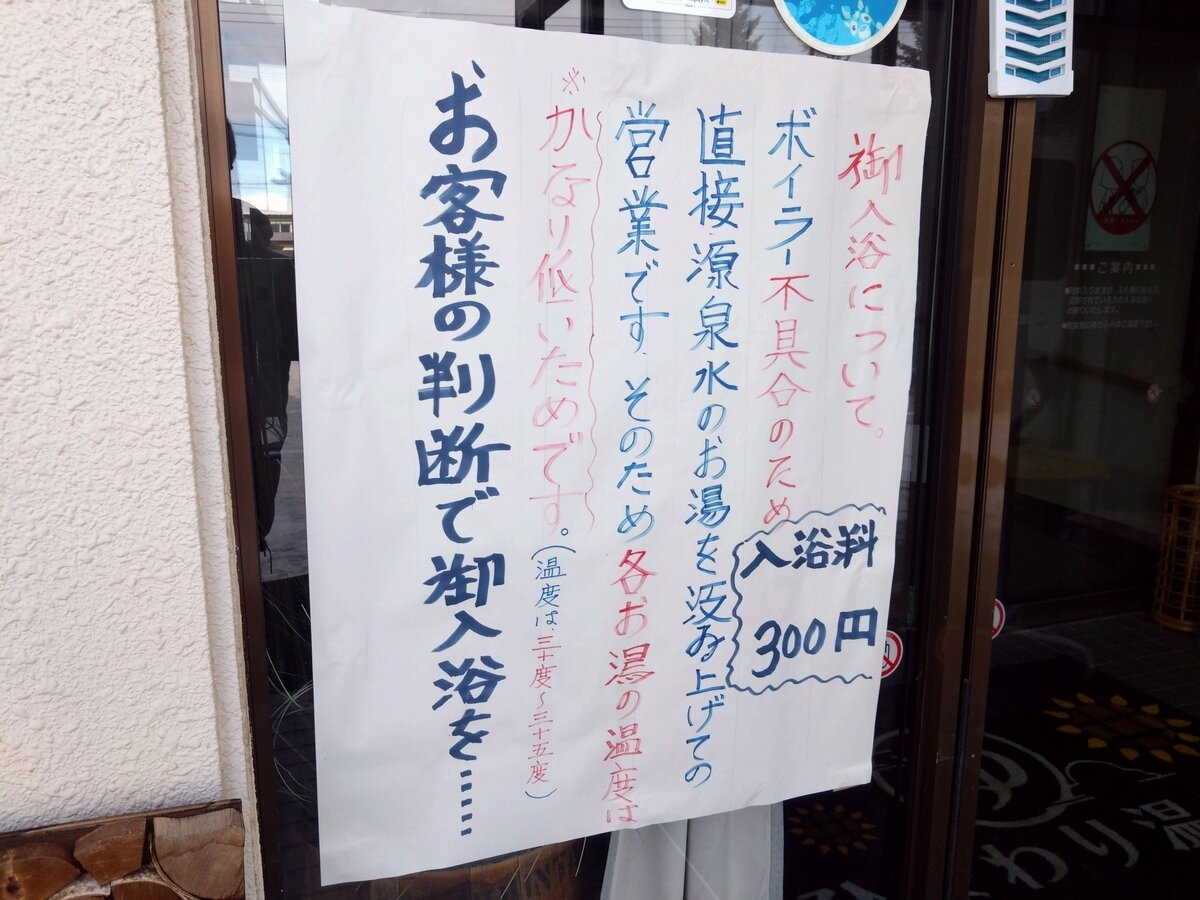 御入浴について。
ボイラー不具合のため
直接源泉水のお湯を汲み上げての
営業です、そのため各お湯の温度は
※かなり低いためです。(温度は、三十度～三十五度)
お客様の判断で御入浴を……
入浴料
300円
ご案内
わり湯